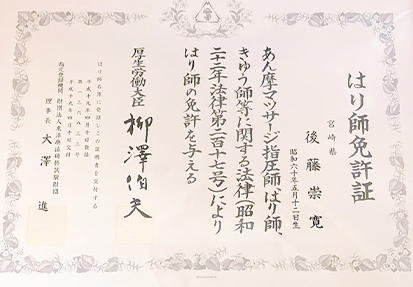 はり師免許証
宮崎県
後藤崇寛
昭和六十年五月十二日生
あん摩マツサージ指圧師、はり師、
きゆう師等に関する法律(昭和
二十二年法律第二百十七号)により
はり師の免許を与える
厚生労働大臣 柳澤伯夫
はり師名簿に登録しこの免許証を交付する
平成十九年四月十日登録
平成十九年四月十日交付
指定登録機関 財団法人東洋療法研修試験財団
理事長 大澤進